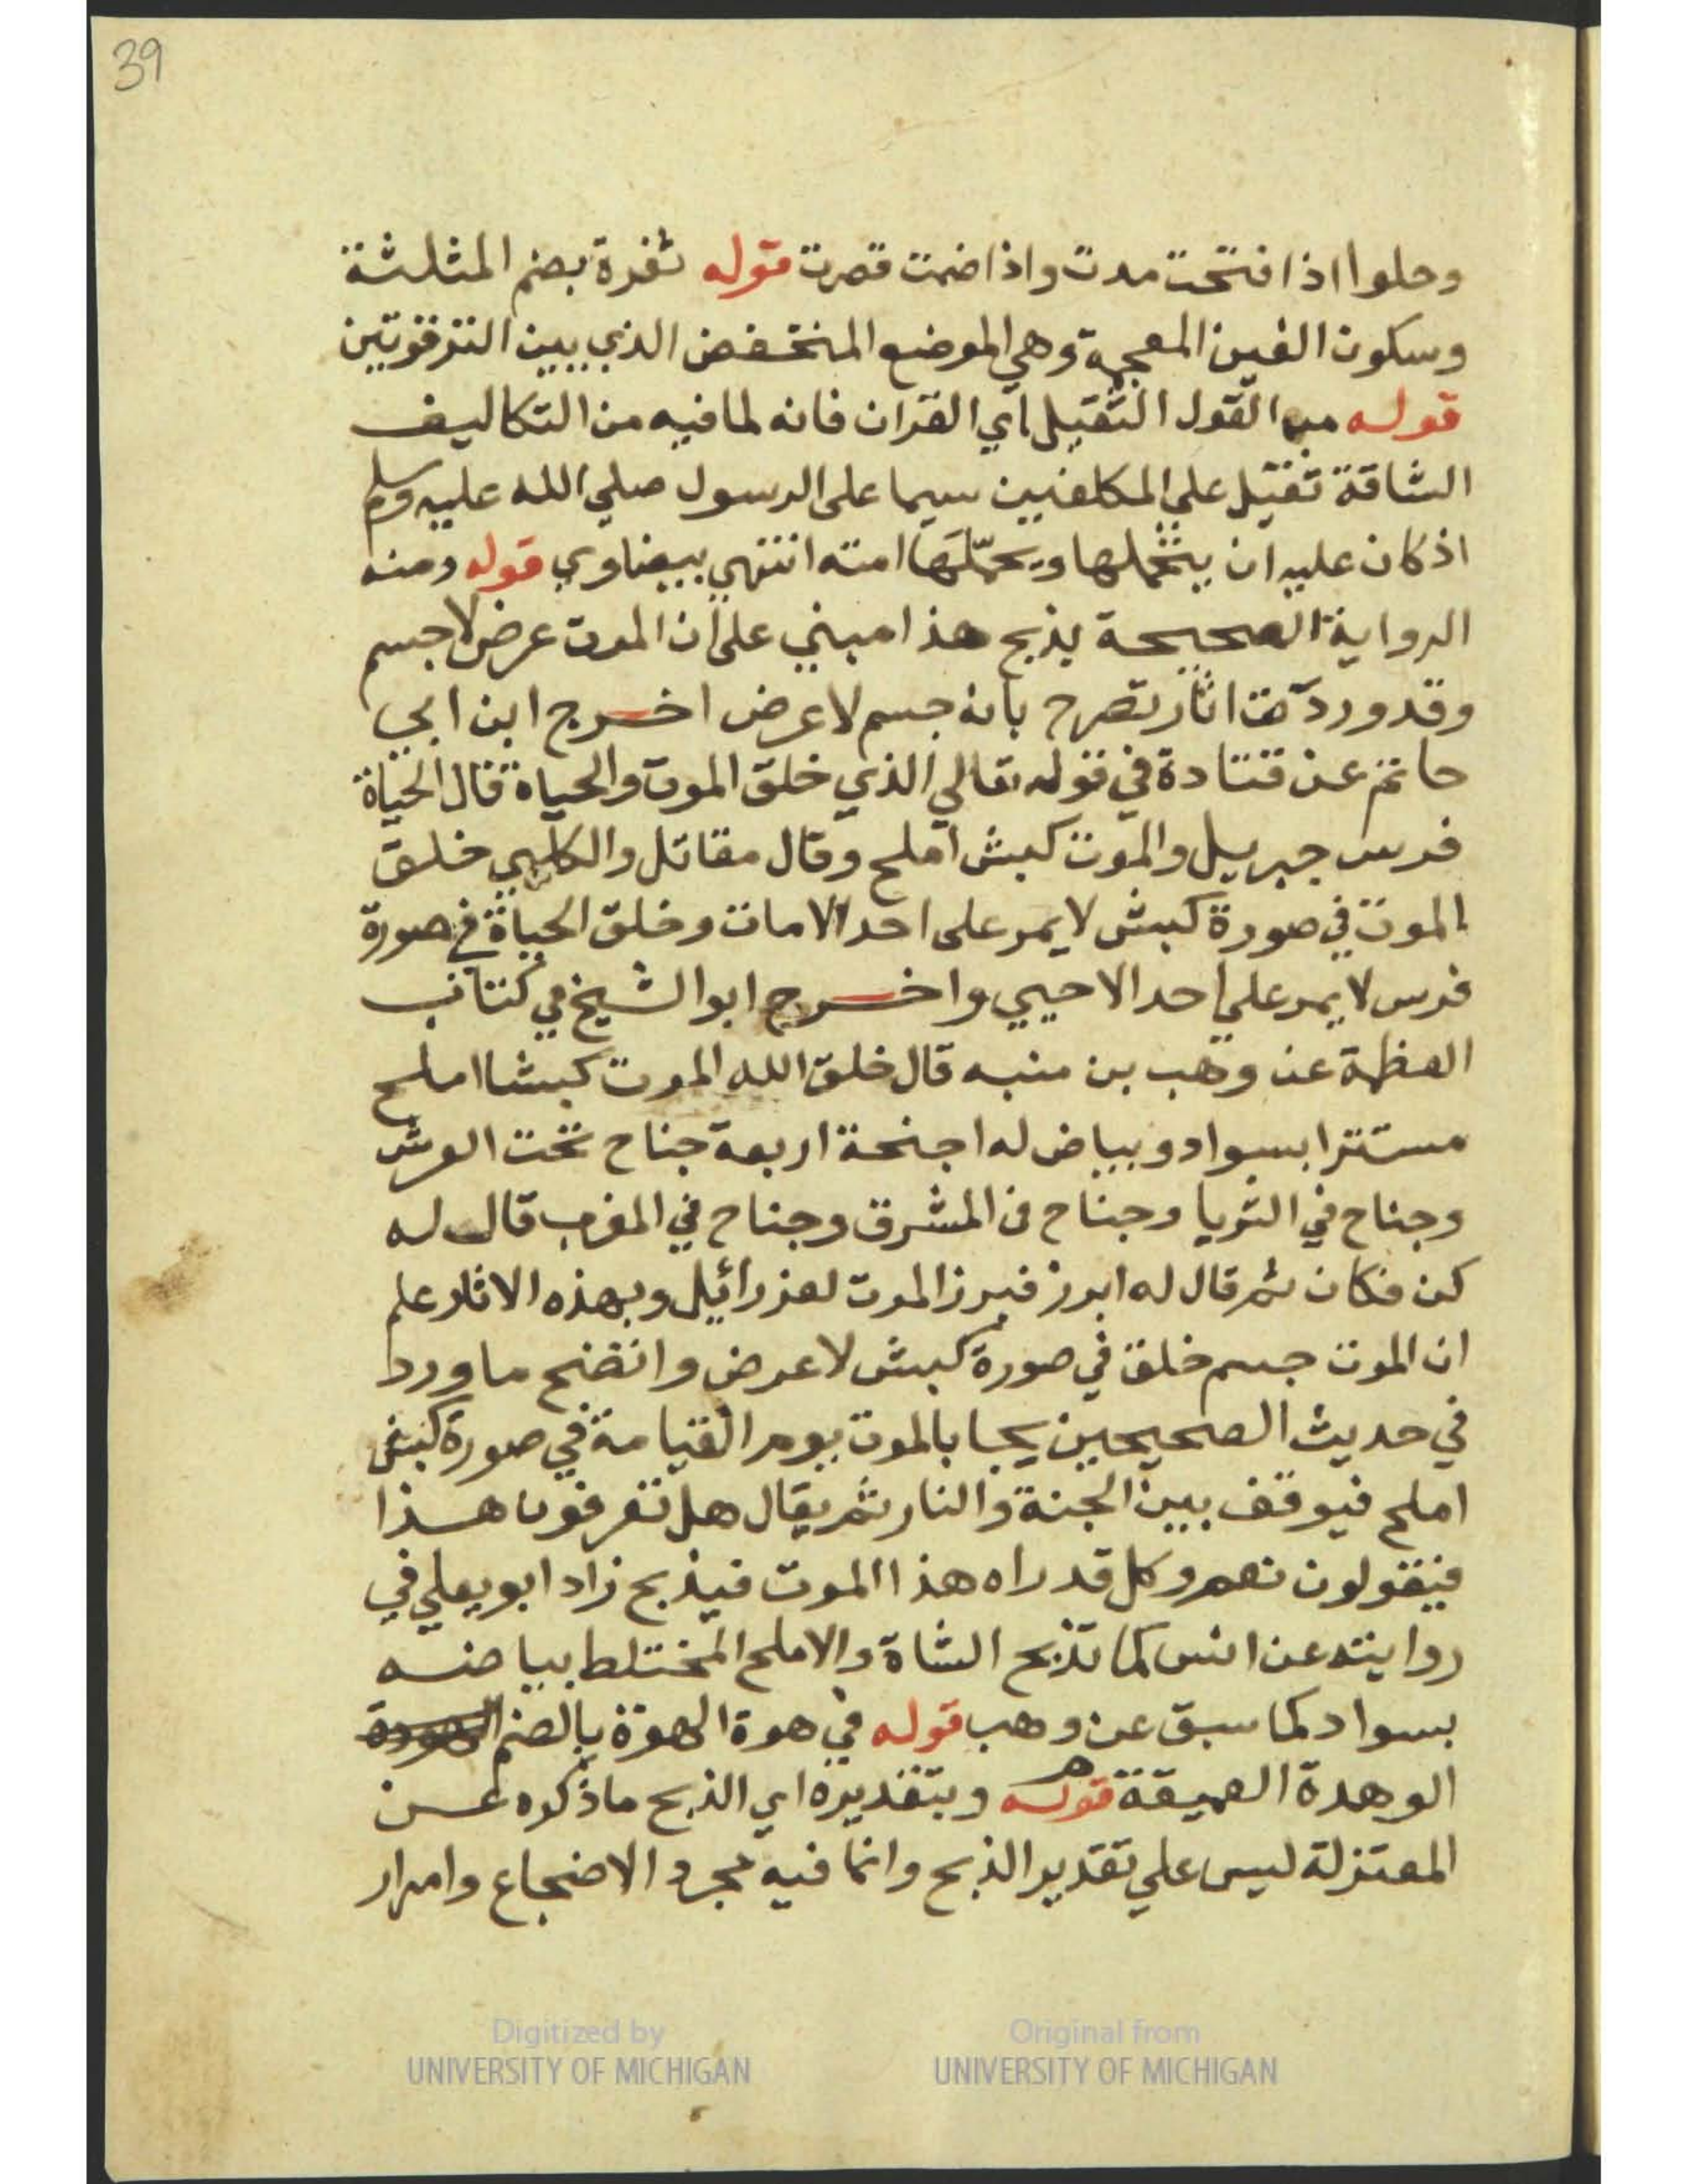 39
وحلوا اذا فتحت مدت واذا ضمت قصرت قوله ثغرة بضم المثلثة
وسكون الغين المعجمة وهي الموضع المنخفض الذي بين الترقوتين
قوله من القول الثقيل اي القران فانه لما فيه من التكاليف
الشاقة ثقيل على المكلفين سيما على الرسول صلي الله عليه وسلم
اذ كان عليه ان يتحملها ويحمّلها امته انتهي بيضاوي قوله ومنه
الرواية الصحيحة يذبح هذا مبني على ان الموت عرض لا جسم
وقد وردت اثار تصرح بانه جسم لا عرض اخرج ابن ابي
حاتم عن قتادة في قوله تعالي الذي خلق الموت والحياة قال الحياة
فرس جبريل والموت كبش املح وقال مقاتل والكلبي خلق
الموت في صورة كبش لا يمر على احد الا مات وخلق الحياة في صورة
فرس لا يمر علي احد الا حيي واخرج ابو الشيخ في كتاب
العظمة عن وهب بن منبه قال خلق الله الموت كبشا املح
مستترا بسواد وبياض له اجنحة اربعة جناح تحت العرش
وجناح في الثريا وجناح في المشرق وجناح في المغرب قال له
كن فكان ثم قال له ابرز فبرز الموت لعزرائيل وبهذه الاثار علم
ان الموت جسم خلق في صورة كبش لا عرض واتضح ما ورد
في حديث الصحيحين يجا بالموت يوم القيامة في صورة كبش
املح فيوقف بين الجنة والنار ثم يقال هل تعرفون هذا
فيقولون نعم وكل قد راه هذا الموت فيذبح زاد ابو يعلي في
روايته عن انس كما تذبح الشاة والاملح المختلط بياضه
بسواد كما سبق عن وهب قوله في هوة الهوة بالضم
الوهدة العميقة قوله وبتقديره اي الذبح ما ذكره عن
المعتزلة ليس علي تقدير الذبح وانما فيه مجرد الاضجاع وامرار
Digitized by
UNIVERSITY OF MICHIGAN
Original from
UNIVERSITY OF MICHIGAN